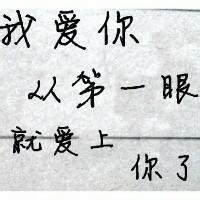 我爱你
从第一眼
就爱上
你了